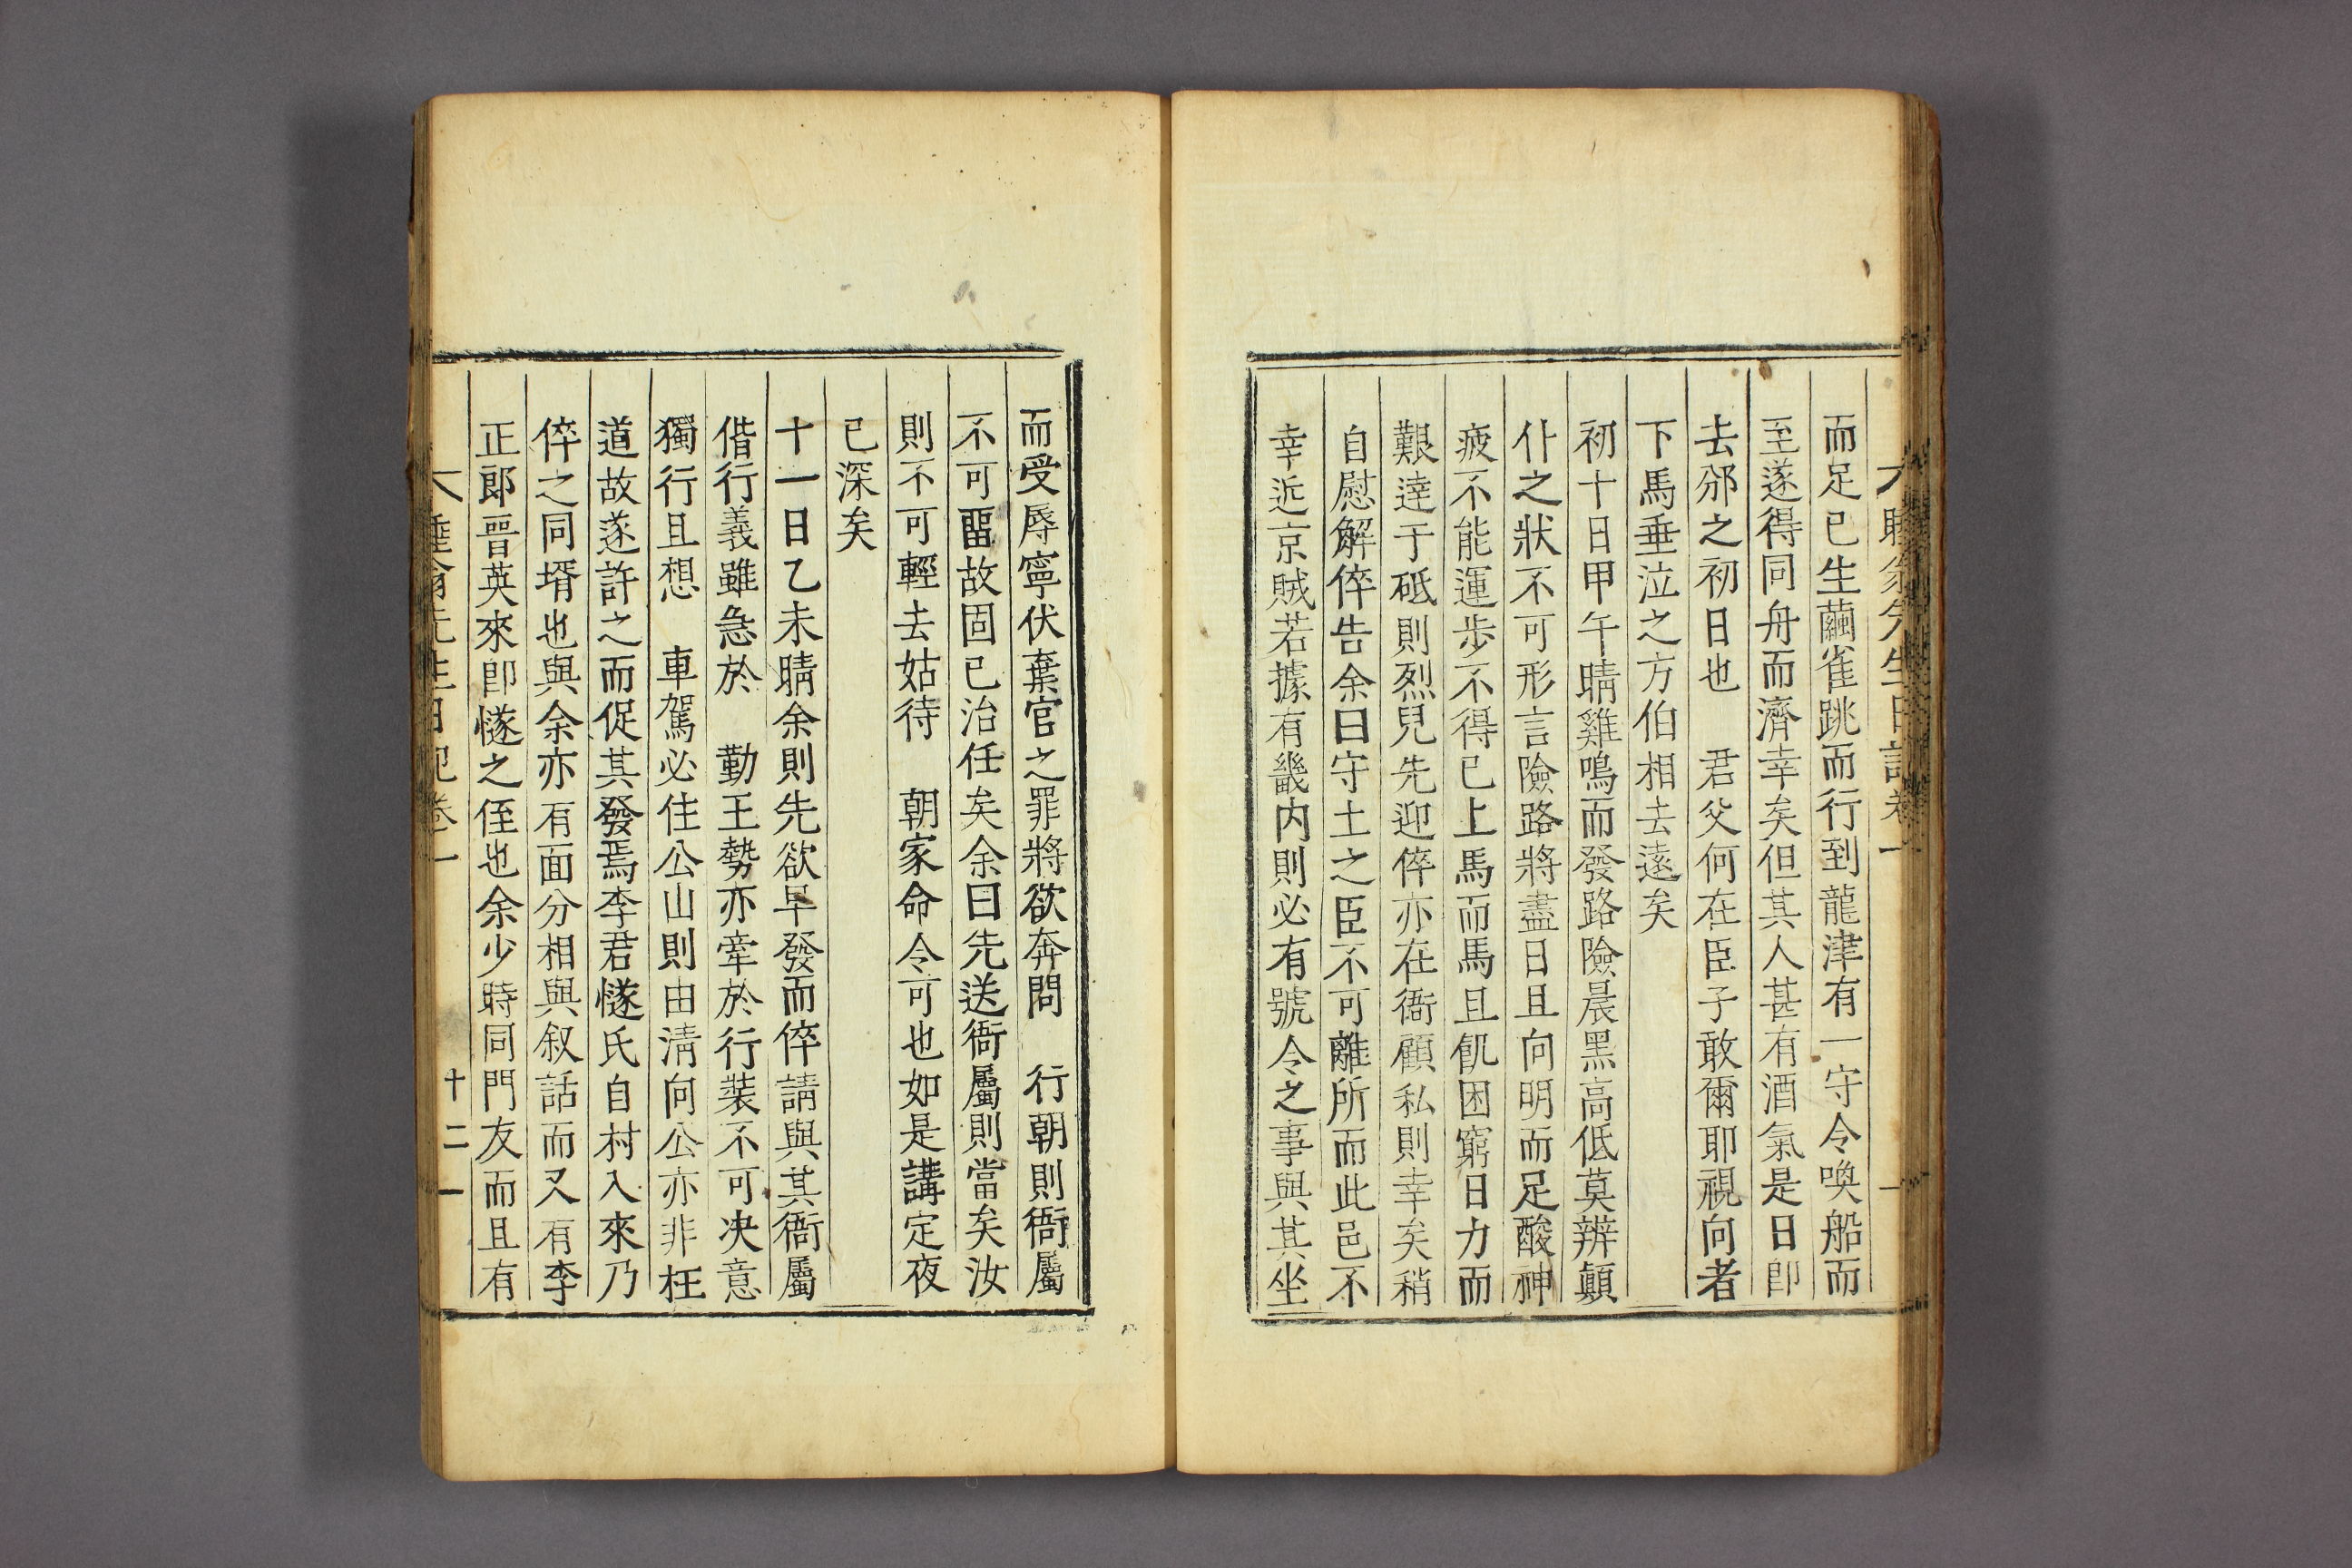 睡翁先生日記卷一
而足已生繭雀跳而行到龍津有一守令喚船而
至遂得同舟而濟幸矣但其人甚有酒氣是日卽
去邠之初日也　君父何在臣子敢爾耶視向者
下馬垂泣之方伯相去遠矣
初十日甲午晴雞鳴而發路險晨黑高低莫辨顚
仆之狀不可形言險路將盡日且向明而足酸神
疲不能運步不得已上馬而馬且飢困窮日力而
艱達于砥則烈兒先迎倅亦在衙顧私則幸矣稍
自慰解倅告余曰守土之臣不可離所而此邑不
幸近京賊若據有畿内則必有號令之事與其坐
而受辱寧伏棄官之罪將欲奔問　行朝則衙屬
不可畱故固已治任矣余曰先送衙屬則當矣汝
則不可輕去姑待　朝家命令可也如是講定夜
已深矣
十一日乙未晴余則先欲早發而倅請與其衙屬
偕行義雖急於　勤王勢亦牽於行裝不可决意
獨行且想　車駕必住公山則由淸向公亦非枉
道故遂許之而促其發焉李君憽氏自村入來乃
倅之同壻也與余亦有面分相與叙話而又有李
正郞晉英來卽憽之侄也余少時同門友而且有
睡翁先生日記卷一　十二